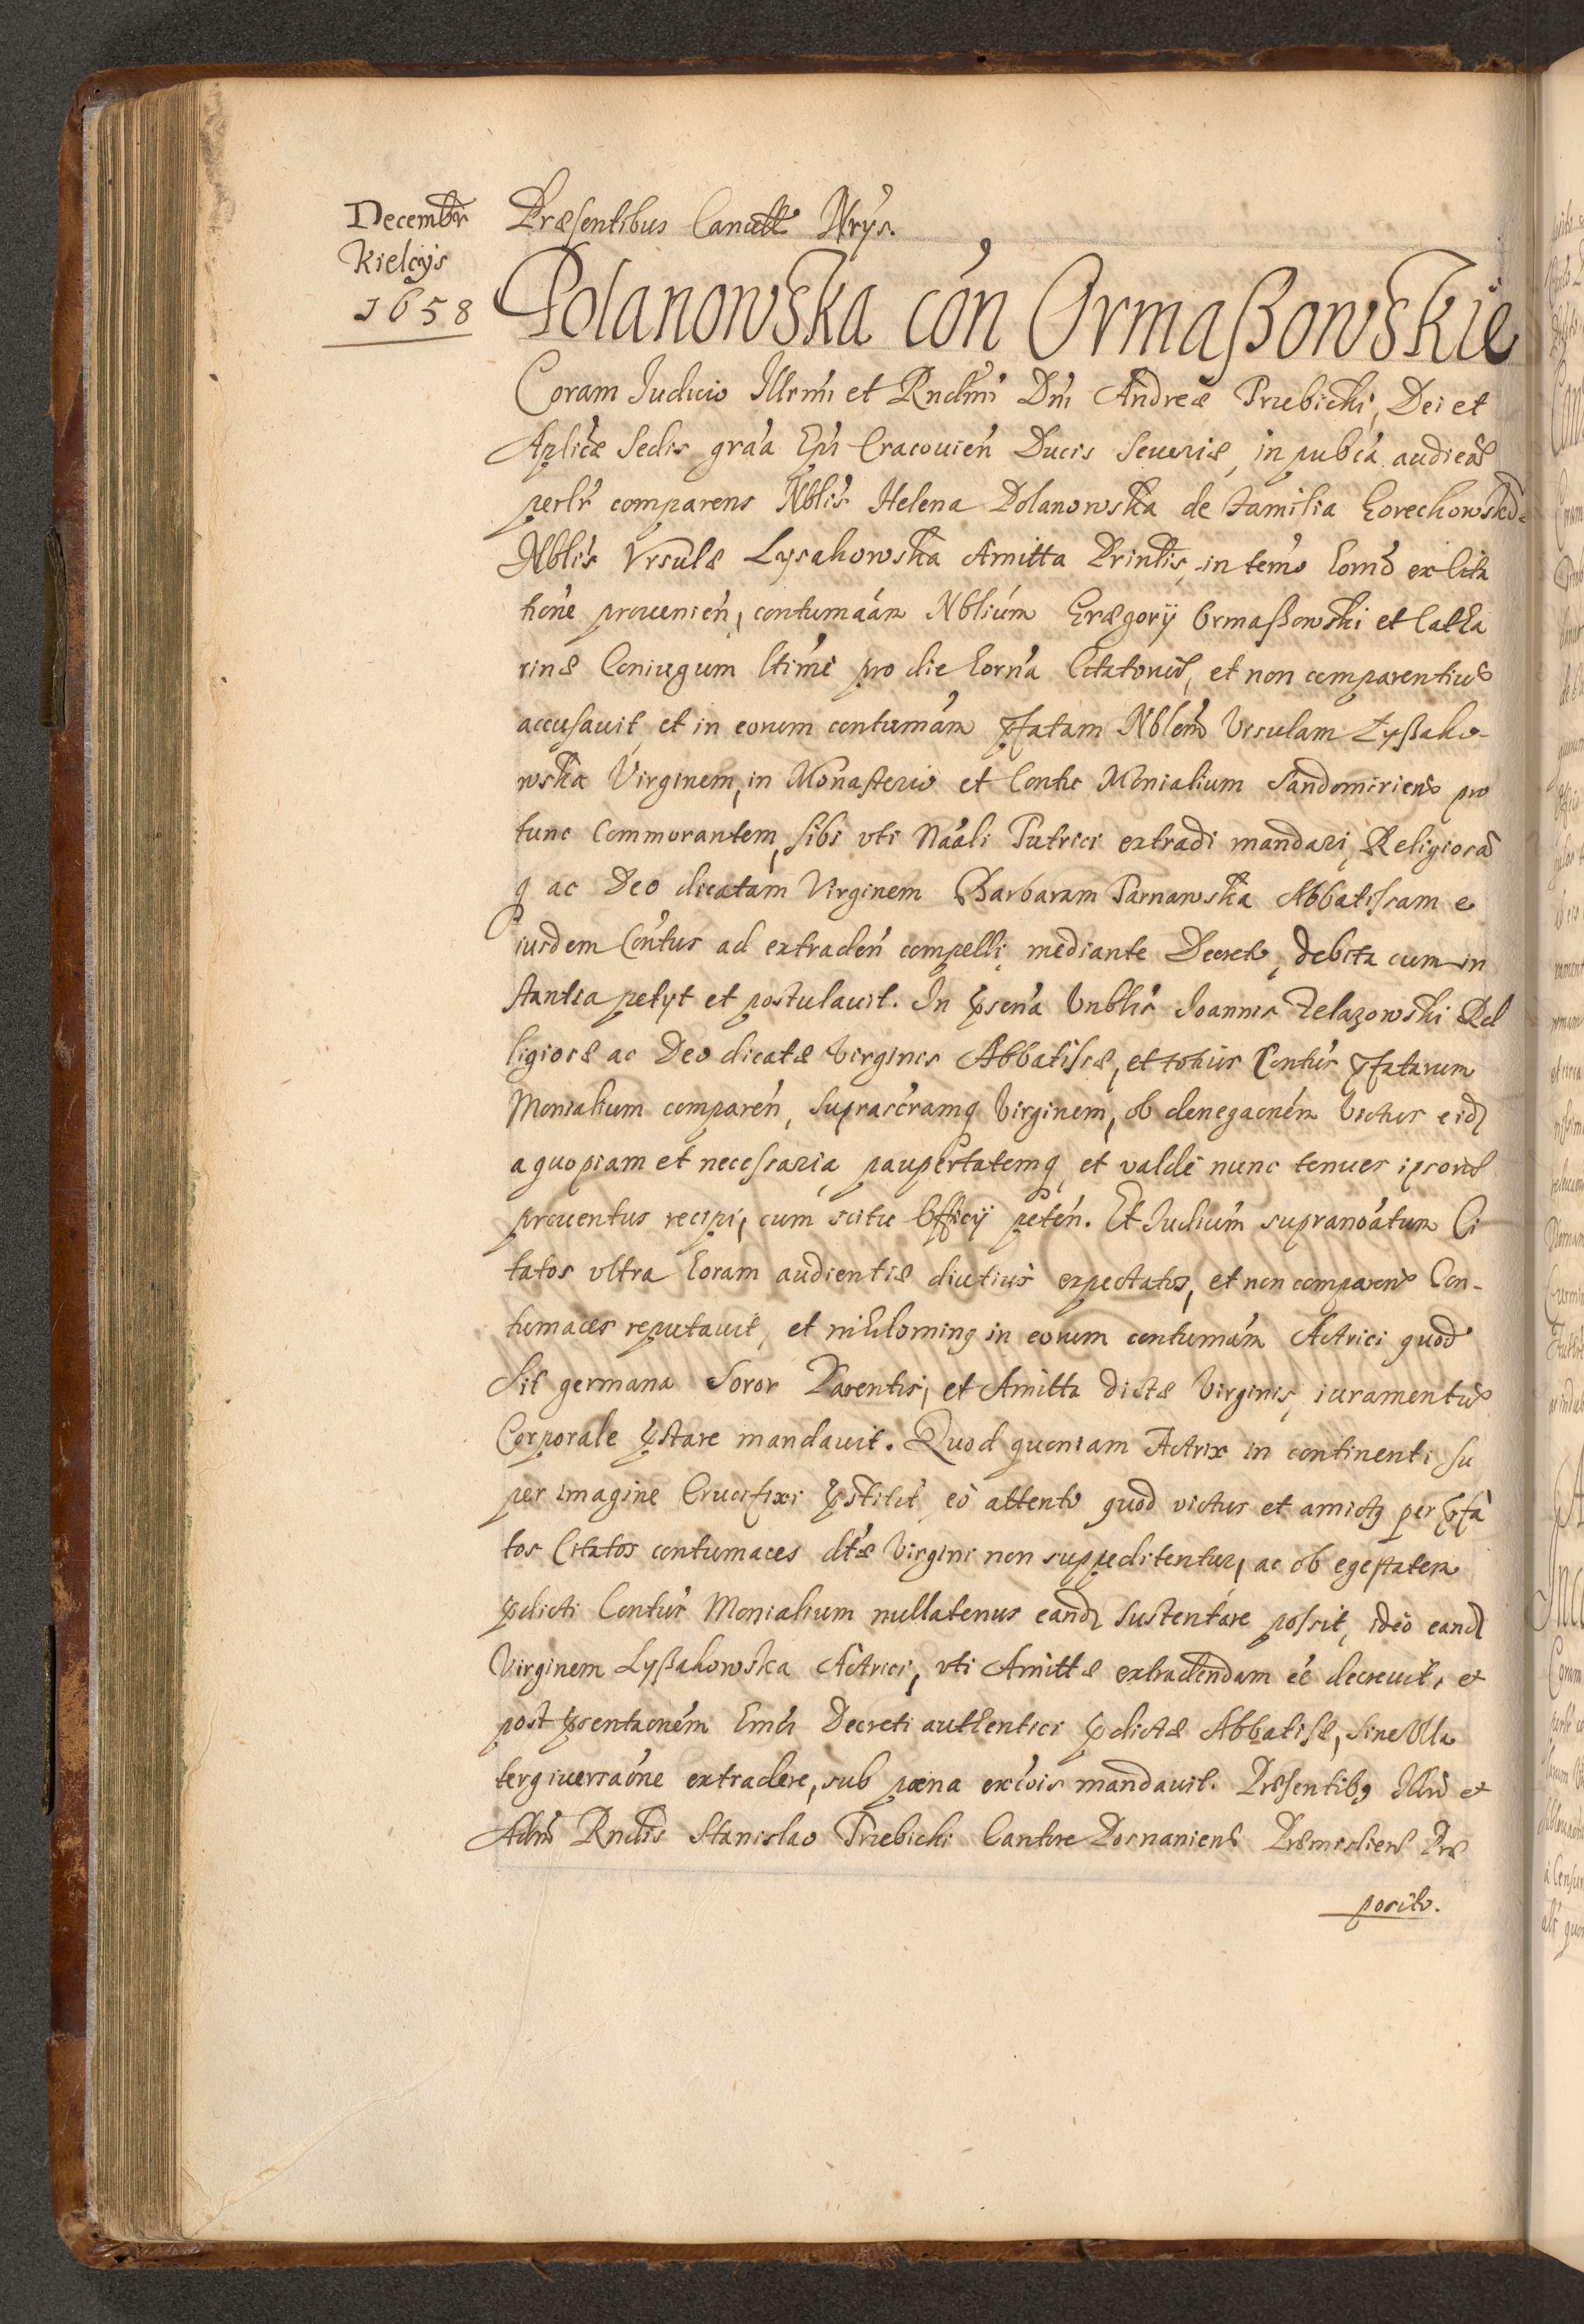 Decembr
Kielcijs
1658
Præsentibus Cancell Nrys.
Polanowska cón Ormaßowskie
Coram Iudicio Illrmi et Rndmi Dni Andreæ Trzebicki, Dei et
Aplicæ Sedis gra'a Epi Cracouien Ducis Seueriæ, in pubca audieñ
perlr comparens Nblis Helena Polanowska de familia horechowska
Nblis Vrsulæ Lysakowska Amitta Printis, in temo horno ex Cita
tione prouenien, contumaám Nblium Græegorij Ormaßowski et Catha
rinæ Coniugum ltime pro die horna Citatorum, et non comparentium
accusauit, et in eorum contumám pfatam Nblem Vrsulam Lyßako-
wska Virginem, in Monasterio et Contu Monialium Sandomiriens pro
tunc Commorantem, sibi vti Naáli Tutrici extradi mandari, Religiosa
q ac Deo dicatam Virginem Barbaram Tarnawska Abbatissam e
iusdem Contus ad extraden compelli, mediante Decreto, debita cum in
stantia petyt et postulauit. In psena Vnblis Ioannis Zelazowski Rel
ligiosæ ac Deo dicatæ Virginis Abbatissæ, et totius Contus pfatarum
Monialium comparen, suprascramq Virginem, ob denegaonem victus eid
a quopiam et necessaria, paupertatemq, et valdé nunc tenues ipsorum
prouentus recipi, cum scitu Officij peten. Et Iudium supranoátum Ci
tatos vltra horam audientiæ diutius expectatos, et non comparens Con-
tumaces reputauit, et nihilominq in eorum contumám Actrici quod
sit germana Soror Parentis, et Amitta dictæ Virginis, iuramentum
Corporale pstare mandauit. Quod quoniam Actrix in continenti su
per imagine Crucifixi pstitit, eó attento quod victus et amictq per pfa
tos Citatos contumaces dtæ Virgini non suppeditentur, ac ob egestatem
pdicti Contus Monialium nullatenus eand sustentare possit, ideo eand
Virginem Lyßakowska Actrici, vti Amittæ extradendam eé decreuit, et
post psentaonem hmoi Decreti authentici pdictæ Abbatissæ, sine Vlla
tergiuersaóne extradere, sub pæna excois mandauit. Præsentibq Illri et
Adm Rndis Stanislao Trzebicki Cantore Posnaniens Præmisliens Præ
posito.